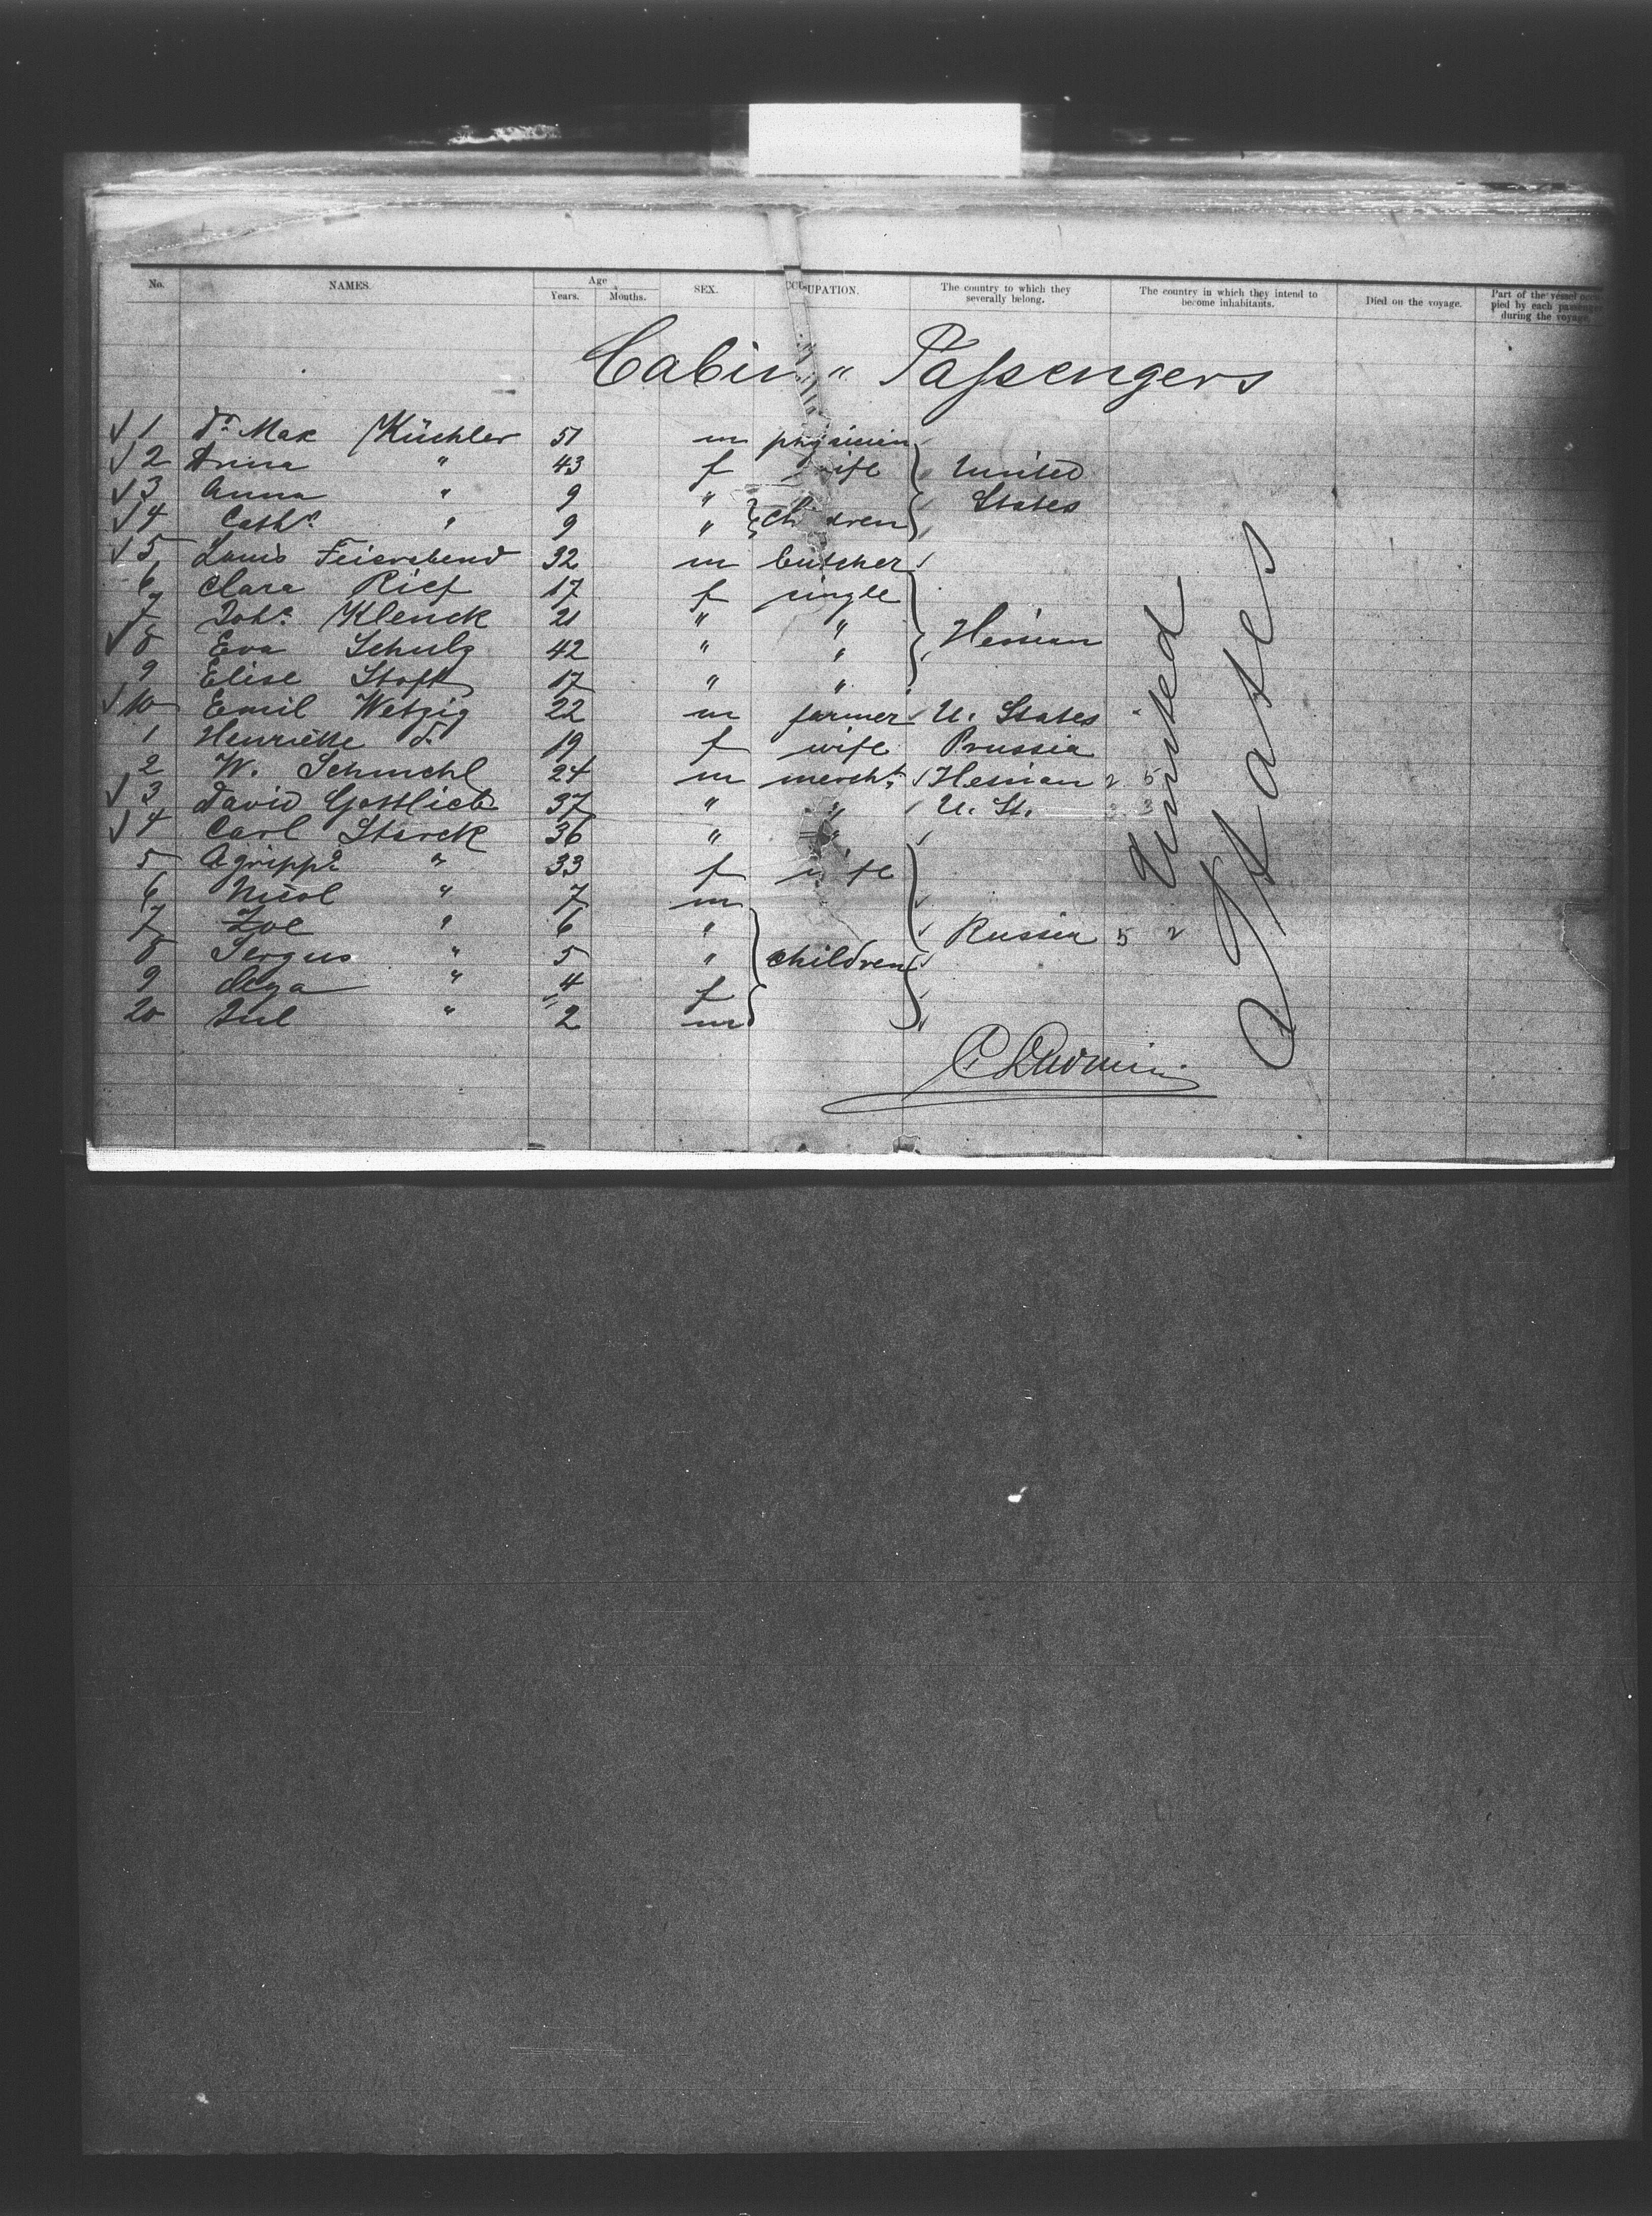 No. NAMES. Age Years. Months. SEX. OCCUPATION. The country to which they severally belong. The country in which they intend to become inhabitants. Died on the voyage. Part of the vessel occupied by each passenger during the voyage.
Cabin " Passengers
√ 1 Dr Max Küchler 51 m physician
√ 2 Anna " 43 f wife United
√ 3 Anna " 9 " States
√ 4 Cathe " 9 " children
√ 5 Louis Feierabend 32 m butcher
6 Clara Rief 17 f single
7 Joh. Klenck 21 " "
√ 8 Eva Schulz 42 " " Hessian
9 Elise Stoft 17 " "
√ 10 Emil Wetzig 22 m farmer U. States
1 Henriette do. 19 f wife Prussia
2 W. Schmehl 24 m mercht. Hessian 2 5
√ 3 David Gottlieb 37 " " U. St. 3
√ 4 Carl Starck 36 " "
5 Agrippa " 33 f wife
6 Nicol " 7 m
7 Zoe " 6 " Russia 5 2
8 Sergus " 5 " children
9 " 4 f
20 Jul " 2 m
United
States